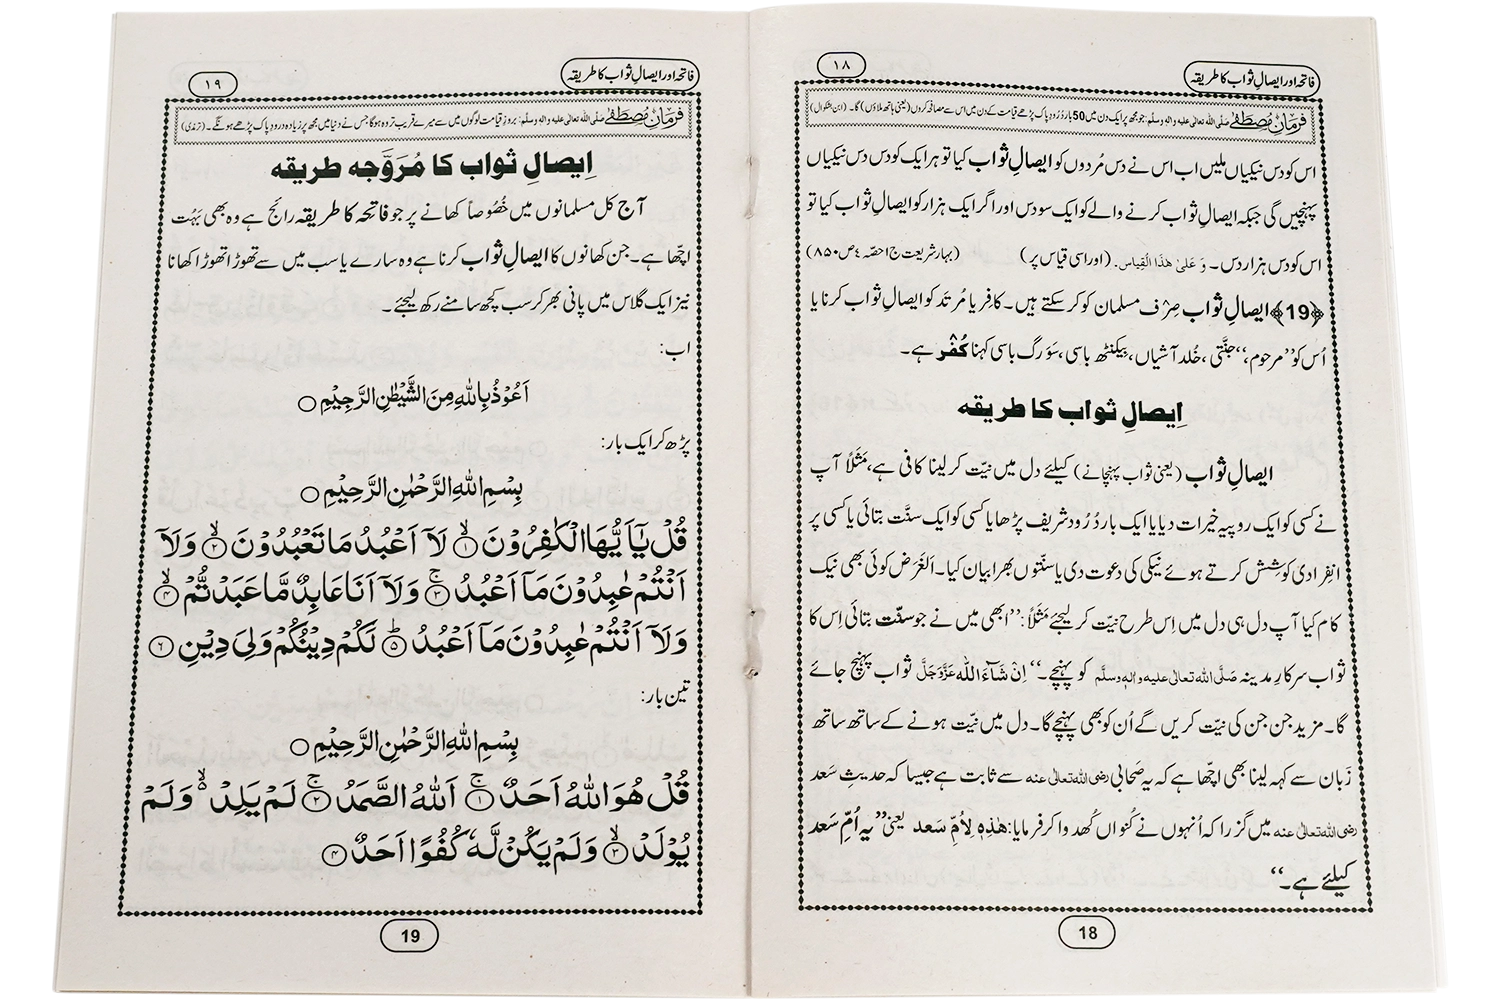 فاتحہ اور ایصالِ ثواب کا طریقہ
١٨
فرمانِ مصطفٰے صلی اللہ تعالیٰ علیہ والہٖ وسلم: جو مجھ پر ایک دن میں 50 بار دُرُود پاک پڑھے قیامت کے دن میں اس سے مصافحہ کروں (یعنی ہاتھ ملاؤں) گا۔ (ابن بشکوال)
اس کو دس نیکیاں ملیں اب اس نے دس مُردوں کو ایصالِ ثواب کیا تو ہر ایک کو دس دس نیکیاں
پہنچیں گی جبکہ ایصالِ ثواب کرنے والے کو ایک سو دس اور اگر ایک ہزار کو ایصالِ ثواب کیا تو
اس کو دس ہزار دس۔ وَ عَلیٰ ھٰذَا الْقِیاس. (اور اسی قیاس پر) (بہارِ شریعت ج ١ حصّہ ٤ ص ٨٥٠)
﴿19﴾ ایصالِ ثواب صِرْف مسلمان کو کر سکتے ہیں۔ کافِر یا مُرتَد کو ایصالِ ثواب کرنا یا
اُس کو ”مرحوم“، جنّتی، خُلد آشیاں، بیکنٹھ باسی، سَوَرگ باسی کہنا کُفْر ہے۔
اِیصالِ ثواب کا طریقہ
ایصالِ ثواب (یعنی ثواب پہنچانے) کیلئے دل میں نیّت کر لینا کافی ہے، مَثَلاً آپ
نے کسی کو ایک روپیہ خیرات دیا یا ایک بار دُرُود شریف پڑھا یا کسی کو ایک سنَّت بتائی یا کسی پر
انفِرادی کوشِش کرتے ہوئے نیکی کی دعوت دی یا سنّتوں بھرا بیان کیا۔ اَلغَرَض کوئی بھی نیک
کام کیا آپ دل ہی دل میں اِس طرح نیّت کر لیجئے مَثَلاً: ”ابھی میں نے جو سنّت بتائی اِس کا
ثواب سرکارِ مدینہ صَلَّی اللہ تعالیٰ علیہ والہٖ وسلَّم کو پہنچے۔“ اِنْ شَآءَ اللہ عَزَّوَجَلَّ ثواب پہنچ جائے
گا۔ مزید جن جن کی نیّت کریں گے اُن کو بھی پہنچے گا۔ دل میں نیّت ہونے کے ساتھ ساتھ
زَبان سے کہہ لینا بھی اچّھا ہے کہ یہ صَحابی رضی اللہ تعالیٰ عنہ سے ثابت ہے جیسا کہ حدیثِ سَعد
رضی اللہ تعالیٰ عنہ میں گزرا کہ اُنہوں نے کُنواں کُھدوا کر فرمایا: ھٰذِہٖ لِاُمِّ سَعد یعنی ”یہ اُمِّ سَعد
کیلئے ہے۔“
18
فاتحہ اور ایصالِ ثواب کا طریقہ
١٩
فرمانِ مصطفٰے صلی اللہ تعالیٰ علیہ والہٖ وسلم: بروزِ قیامت لوگوں میں سے میرے قریب تر وہ ہوگا جس نے دنیا میں مجھ پر زیادہ درودِ پاک پڑھے ہونگے۔ (ترمذی)
اِیصالِ ثواب کا مُرَوَّجہ طریقہ
آج کل مسلمانوں میں خُصُوصاً کھانے پر جو فاتحہ کا طریقہ رائج ہے وہ بھی بَہُت
اچھا ہے۔ جن کھانوں کا ایصالِ ثواب کرنا ہے وہ سارے یا سب میں سے تھوڑا تھوڑا کھانا
نیز ایک گلاس میں پانی بھر کر سب کچھ سامنے رکھ لیجئے۔
اب:
اَعُوْذُ بِاللہِ مِنَ الشَّیْطٰنِ الرَّجِیْمِ ○
پڑھ کر ایک بار:
بِسْمِ اللہِ الرَّحْمٰنِ الرَّحِیْمِ ○
قُلْ یٰۤاَیُّهَا الْكٰفِرُوْنَ ۙ﴿۱﴾ لَاۤ اَعْبُدُ مَا تَعْبُدُوْنَ ۙ﴿۲﴾ وَلَاۤ
اَنْتُمْ عٰبِدُوْنَ مَاۤ اَعْبُدُ ۚ﴿۳﴾ وَلَاۤ اَنَا عَابِدٌ مَّا عَبَدْتُّمْ ۙ﴿۴﴾
وَلَاۤ اَنْتُمْ عٰبِدُوْنَ مَاۤ اَعْبُدُ ؕ﴿۵﴾ لَكُمْ دِیْنُكُمْ وَلِیَ دِیْنِ ﴿۶﴾
تین بار:
بِسْمِ اللہِ الرَّحْمٰنِ الرَّحِیْمِ ○
قُلْ هُوَ اللہُ اَحَدٌ ۚ﴿۱﴾ اَللہُ الصَّمَدُ ۚ﴿۲﴾ لَمْ یَلِدْ ۙ۬ وَلَمْ
یُوْلَدْ ۙ﴿۳﴾ وَلَمْ یَكُنْ لَّهٗ كُفُوًا اَحَدٌ ﴿۴﴾
19